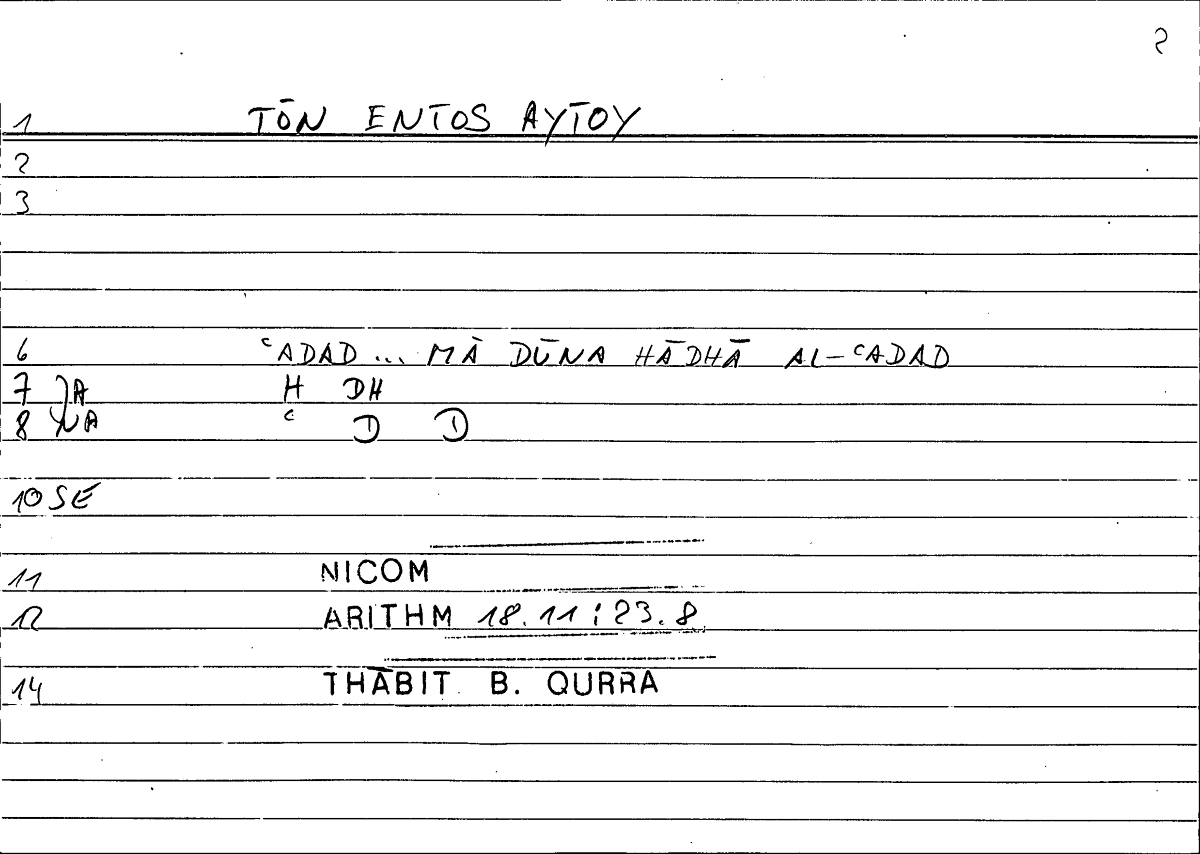 2
1 TŌN ENTOS AYTOY
2
3
6 ʿADAD ... MĀ DŪNA HĀDHĀ AL-ʿADAD
7 JA H DH
8 NA ʿ D D
10 SE
11 NICOM
12 ARITHM 18.11 ; 23.8
14 THĀBIT B. QURRA